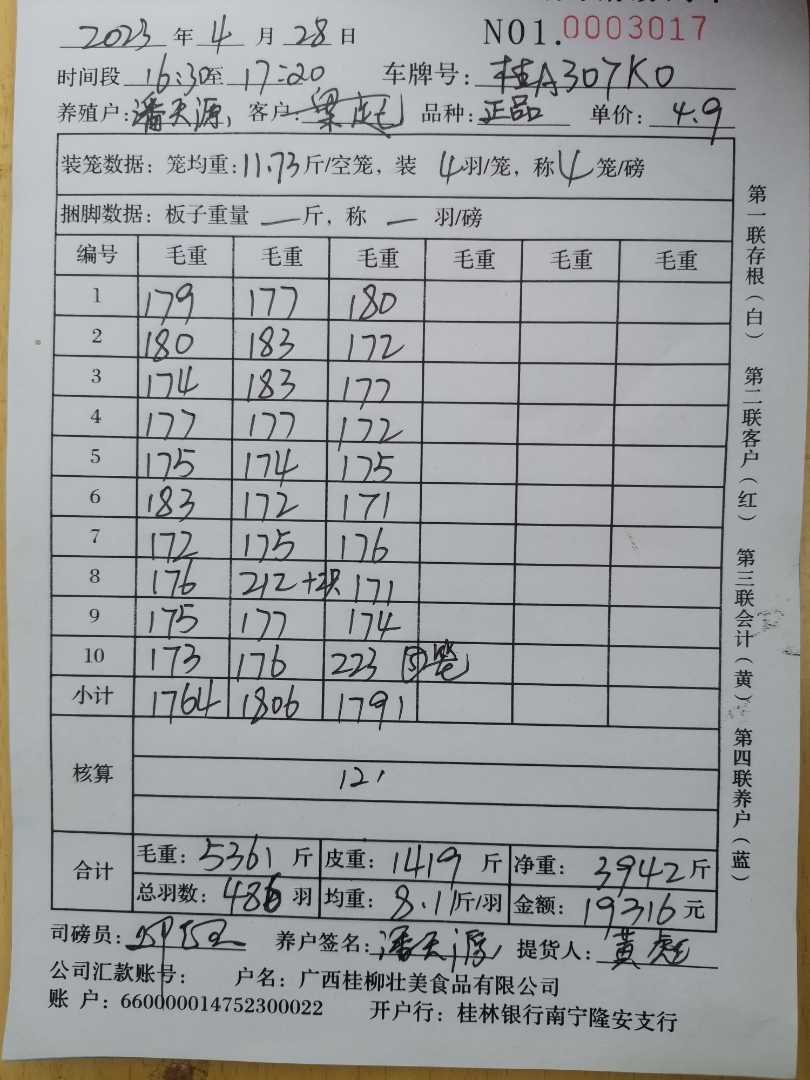 2023 年 4 月 28 日 NO1.0003017
时间段 16:30至 17:20 车牌号: 桂A307K0
养殖户: 潘天源, 客户: 梁 品种: 正品 单价: 4.9
装笼数据: 笼均重: 11.73斤/空笼, 装 4羽/笼, 称4笼/磅
捆脚数据: 板子重量 —斤, 称 — 羽/磅
编号 毛重 毛重 毛重 毛重 毛重 毛重
1 179 177 180
2 180 183 172
3 174 183 177
4 177 177 172
5 175 174 175
6 183 172 171
7 172 175 176
8 176 212 171
9 175 177 174
10 173 176 223 ⑤笼
小计 1764 1806 1791
核算 12,
合计 毛重: 5361 斤 皮重: 1419 斤 净重: 3942斤
总羽数: 486 羽 均重: 8.11斤/羽 金额: 19316 元
司磅员: 养户签名: 潘天源 提货人: 黄
公司汇款账号: 户名: 广西桂柳壮美食品有限公司
账 户: 660000014752300022 开户行: 桂林银行南宁隆安支行
第一联存根(白) 第二联客户(红) 第三联会计(黄) 第四联养户(蓝)